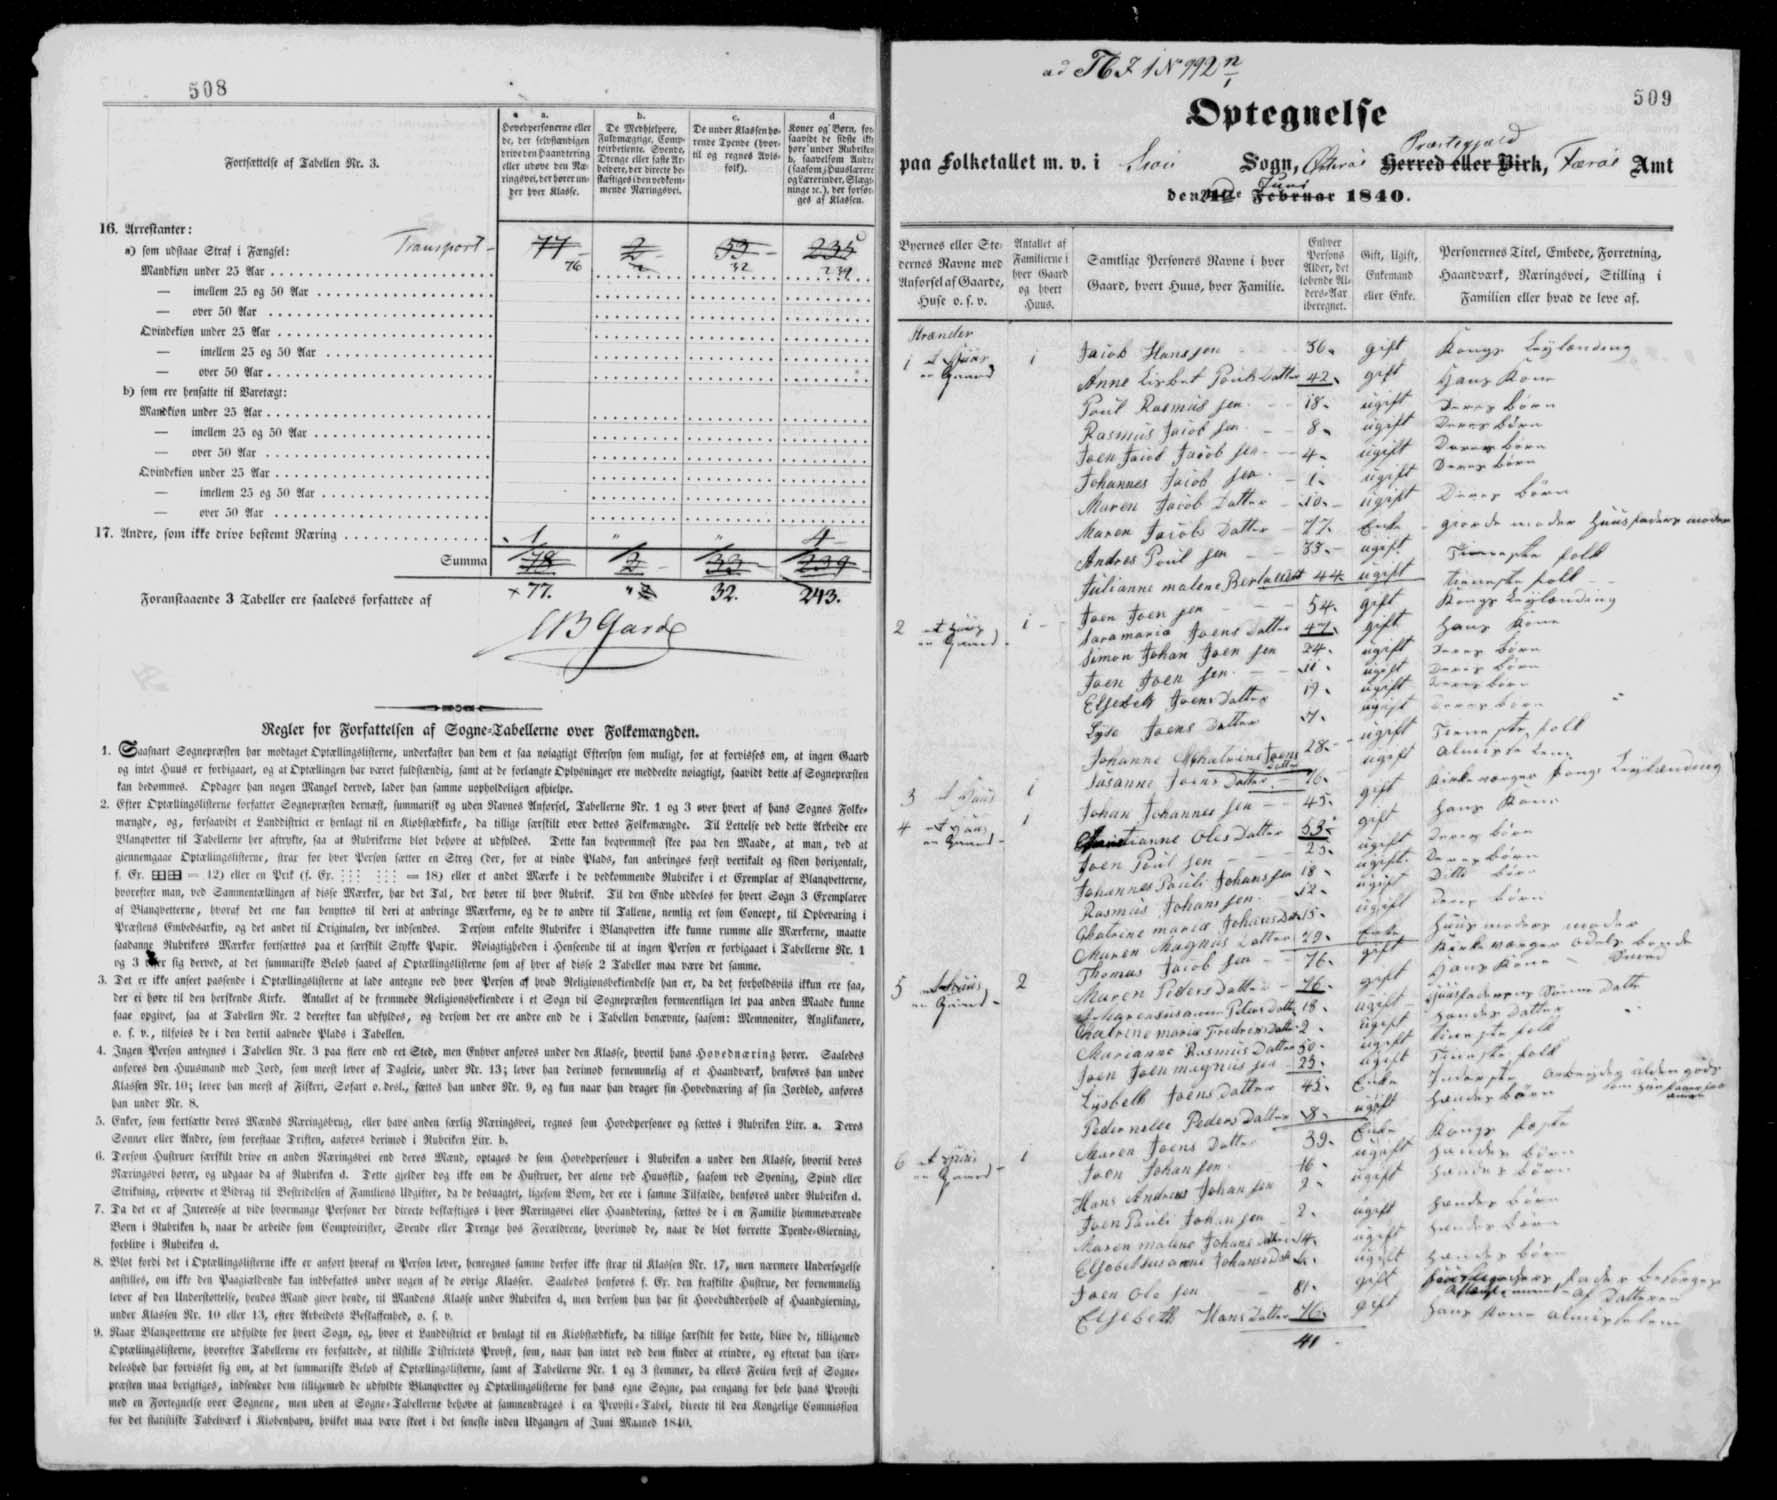 508
Fortsættelse af Tabellen Nr. 3.
a.
Hovedpersonerne eller
de, der selvstændigen
drive den Haandtering
eller udøve den Næ-
ringsvei, der hører un-
der hver Klasse.
b.
De Medhjelpere,
Fuldmægtige, Comp-
toirbetiente, Svende,
Drenge eller faste Ar-
beidere, der directe be-
skæftiges i den vedkom-
mende Næringsvei.
c.
De under Klassen hø-
rende Tyende (hvor-
til og regnes Avls-
folk).
d
Koner og Børn, for-
saavidt de sidste ikke
høre under Rubriken
b, saavelsom Andre
(saasom Huuslærere
og Lærerinder, Slægt-
ninge ꝛc.), der forsør-
ges af Klassen.
16. Arrestanter:
a) som udstaae Straf i Fængsel: Transport 77 2 53 235
Mandkiøn under 25 Aar 76 32 239
— imellem 25 og 50 Aar
— over 50 Aar
Qvindekiøn under 25 Aar
— imellem 25 og 50 Aar
— over 50 Aar
b) som ere hensatte til Varetægt:
Mandkiøn under 25 Aar
— imellem 25 og 50 Aar
— over 50 Aar
Qvindekiøn under 25 Aar
— imellem 25 og 50 Aar
— over 50 Aar
17. Andre, som ikke drive bestemt Næring 1 " " 4
Summa 78 2 33 239
Foranstaaende 3 Tabeller ere saaledes forfattede af 77. 32. 243.
Regler for Forfattelsen af Sogne-Tabellerne over Folkemængden.
1. Saasnart Sognepræsten har modtaget Optællingslisterne, underkaster han dem et saa nøiagtigt Eftersyn som muligt, for at forvisses om, at ingen Gaard
og intet Huus er forbigaaet, og at Optællingen har været fuldstændig, samt at de forlangte Oplysninger ere meddeelte nøiagtigt, saavidt dette af Sognepræsten
kan bedømmes. Opdager han nogen Mangel derved, lader han samme uopholdeligen afhjelpe.
2. Efter Optællingslisterne forfatter Sognepræsten dernæst, summarisk og uden Navnes Anførsel, Tabellerne Nr. 1 og 3 over hvert af hans Sognes Folke-
mængde, og, forsaavidt et Landdistrict er henlagt til en Kiøbstædkirke, da tillige særskilt over dettes Folkemængde. Til Lettelse ved dette Arbeide ere
Blanqvetter til Tabellerne her aftrykte, saa at Rubrikerne blot behøve at udfyldes. Dette kan beqvemmest skee paa den Maade, at man, ved at
giennemgaae Optællingslisterne, strax for hver Person sætter en Streg (der, for at vinde Plads, kan anbringes først vertikalt og siden horizontalt,
f. Ex. = 12) eller en Prik (f. Ex. = 18) eller et andet Mærke i de vedkommende Rubriker i et Exemplar af Blanqvetterne,
hvorefter man, ved Sammentællingen af disse Mærker, har det Tal, der hører til hver Rubrik. Til den Ende uddeles for hvert Sogn 3 Exemplarer
af Blanqvetterne, hvoraf det ene kan benyttes til deri at anbringe Mærkerne, og de to andre til Tallene, nemlig eet som Concept, til Opbevaring i
Præstens Embedsarkiv, og det andet til Originalen, der indsendes. Dersom enkelte Rubriker i Blanqvetten ikke kunne rumme alle Mærkerne, maatte
saadanne Rubrikers Mærker fortsættes paa et særskilt Stykke Papir. Nøiagtigheden i Henseende til at ingen Person er forbigaaet i Tabellerne Nr. 1
og 3 viser sig derved, at det summariske Beløb saavel af Optællingslisterne som af hver af disse 2 Tabeller maa være det samme.
3. Det er ikke anseet passende i Optællingslisterne at lade antegne ved hver Person af hvad Religionsbekiendelse han er, da det forholdsviis ikkun ere faa,
der ei høre til den herskende Kirke. Antallet af de fremmede Religionsbekiendere i et Sogn vil Sognepræsten formeentligen let paa anden Maade kunne
faae opgivet, saa at Tabellen Nr. 2 derefter kan udfyldes, og dersom der ere andre end de i Tabellen benævnte, saasom: Memnoniter, Anglikanere,
o. s. v., tilføies de i den dertil aabnede Plads i Tabellen.
4. Ingen Person antegnes i Tabellen Nr. 3 paa flere end eet Sted, men Enhver anføres under den Klasse, hvortil hans Hovednæring hører. Saaledes
anføres den Huusmand med Jord, som meest lever af Dagleie, under Nr. 13; lever han derimod fornemmelig af et Haandværk, henføres han under
Klassen Nr. 10; lever han meest af Fiskeri, Søfart o. desl., sættes han under Nr. 9, og kun naar han drager sin Hovednæring af sin Jordlod, anføres
han under Nr. 8.
5. Enker, som fortsætte deres Mænds Næringsbrug, eller have anden særlig Næringsvei, regnes som Hovedpersoner og sættes i Rubriken Litr. a. Deres
Sønner eller Andre, som forestaae Driften, anføres derimod i Rubriken Litr. b.
6. Dersom Hustruer særskilt drive en anden Næringsvei end deres Mænd, optages de som Hovedpersoner i Rubriken a under den Klasse, hvortil deres
Næringsvei hører, og udgaae da af Rubriken d. Dette gjelder dog ikke om de Hustruer, der alene ved Huusflid, saasom ved Syening, Spind eller
Strikning, erhverve et Bidrag til Bestridelsen af Familiens Udgifter, da de desuagtet, ligesom Børn, der ere i samme Tilfælde, henføres under Rubriken d.
7. Da det er af Interesse at vide hvormange Personer der directe beskæftiges i hver Næringsvei eller Haandtering, sættes de i en Familie hiemmeværende
Børn i Rubriken b, naar de arbeide som Comptoirister, Svende eller Drenge hos Forældrene, hvorimod de, naar de blot forrette Tyende-Gierning,
forblive i Rubriken d.
8. Blot fordi det i Optællingslisterne ikke er anført hvoraf en Person lever, henregnes samme derfor ikke strax til Klassen Nr. 17, men nærmere Undersøgelse
anstilles, om ikke den Paagiældende kan indbefattes under nogen af de øvrige Klasser. Saaledes henføres f. Ex. den fraskilte Hustrue, der fornemmelig
lever af den Understøttelse, hendes Mand giver hende, til Mandens Klasse under Rubriken d, men dersom hun har sit Hovedunderhold af Haandgierning,
under Klassen Nr. 10 eller 13, efter Arbeidets Beskaffenhed, o. s. v.
9. Naar Blanqvetterne ere udfyldte for hvert Sogn, og, hvor et Landdistrict er henlagt til en Kiøbstædkirke, da tillige særskilt for dette, blive de, tilligemed
Optællingslisterne, hvorefter Tabellerne ere forfattede, at tilstille Districtets Provst, som, naar han intet ved dem finder at erindre, og efterat han især-
deleshed har forvisset sig om, at det summariske Beløb af Optællingslisterne, samt af Tabellerne Nr. 1 og 3 stemmer, da ellers Feilen først af Sogne-
præsten maa berigtiges, indsender dem tilligemed de udfyldte Blanqvetter og Optællingslisterne for hans egne Sogne, paa eengang for hele hans Provsti
med en Fortegnelse over Sognene, men uden at Sogne-Tabellerne behøve at sammendrages i en Provsti-Tabel, directe til den Kongelige Commission
for det statistiske Tabelværk i Kiøbenhavn, hvilket maa være skeet i det seneste inden Udgangen af Juni Maaned 1840.
509
Optegnelse
Præstegjæld
paa Folketallet m. v. i Sogn, Østerøe Herred eller Birk, Færøe Amt
Juni
den Februar 1840.
Byernes eller Ste-
dernes Navne med
Anførsel af Gaarde,
Huse o. s. v.
Antallet af
Familierne i
hver Gaard
og hvert
Huus.
Samtlige Personers Navne i hver
Gaard, hvert Huus, hver Familie.
Enhver
Persons
Alder, det
løbende Al-
ders-Aar
iberegnet.
Gift, Ugift,
Enkemand
eller Enke.
Personernes Titel, Embede, Forretning,
Haandværk, Næringsvei, Stilling i
Familien eller hvad de leve af.
Strænder
1 et Huus 1 Jacob Hanssen 36 gift Kongs Leylænding
en Gaard Anne Lisbet Pouls Datter 42 gift Hans Kone
Poul Rasmus sen 18 ugift Deres børn
Rasmus Jacob sen 8 ugift Deres børn
Joen Jacob Jacob sen 4 ugift Deres børn
Johannes Jacob sen 1 ugift Deres børn
Maren Jacob Datter 10 ugift Deres børn
Maren Jacobs Datter 77 Enke moder Huusfaders moder
Andres Poul sen 33 ugift Tieneste folk
Julianne malene 44 ugift tieneste folk
2 et Huus 1 Joen Joen sen 54 gift Kongs Leylænding
en Gaard Saramaria Joens Datter 47 gift Hans Kone
Simon Johan Joen sen 24 ugift Deres børn
Joen Joen sen 11 ugift Deres børn
Elsebeth Joens Datter 19 ugift Deres børn
Joens Datter 7 ugift Deres børn
Johanne Joens Datter 28 ugift Tieneste folk
Susanne Joens Datter 76 ugift Almisse Lem
3 et Huus 1 Johan Johannes sen 45 gift Kirkeværger Kongs Leylænding
4 et Huus 1 OlesDatter 53 gift Hans Kone
en Gaard Joen Poul sen 23 ugift Deres børn
Johannes Pouli Johans sen 18 ugift Deres børn
Rasmus Johans sen 12 ugift Ditto børn
Chatrine maria Johans Dat 15 ugift Deres børn
Maren Magnus Datter 79 Enke Huus moders moder
5 et Huus 2 Thomas Jacob sen 76 gift Kirkeværger Odels bonde
en Gaard Maren Peders Datter 76 gift Hans Kone
Peters Datte 18 ugift Huusfaderens Sønne Datte
Chatrine maria Fredrixs Datte 2 ugift Hendes Datter
Marianne Rasmus Datter 50 ugift tieneste folk
Joen Joen magnus sen 23 ugift Tieneste folk
Lysbeth Joens Datter 45 Enke Inderste
Pedernelle Peders Datter 8 ugift Hendes børn
6 et Huus 1 Maren Joens Datter 39 Enke Kongs fæste
en Gaard Joen Johan sen 16 ugift Hendes børn
Hans Andreas Johan sen 2 ugift Hendes børn
Joen Pauli Johan sen 2 ugift Hendes børn
Maren malene Johans Datter 14 ugift Hendes børn
Elsebeth susanne Johans Dat ugift Hendes børn
Joen Ole sen 81 gift
Elsebeth Hans Datter 76 gift Hans Kone almisselem
41